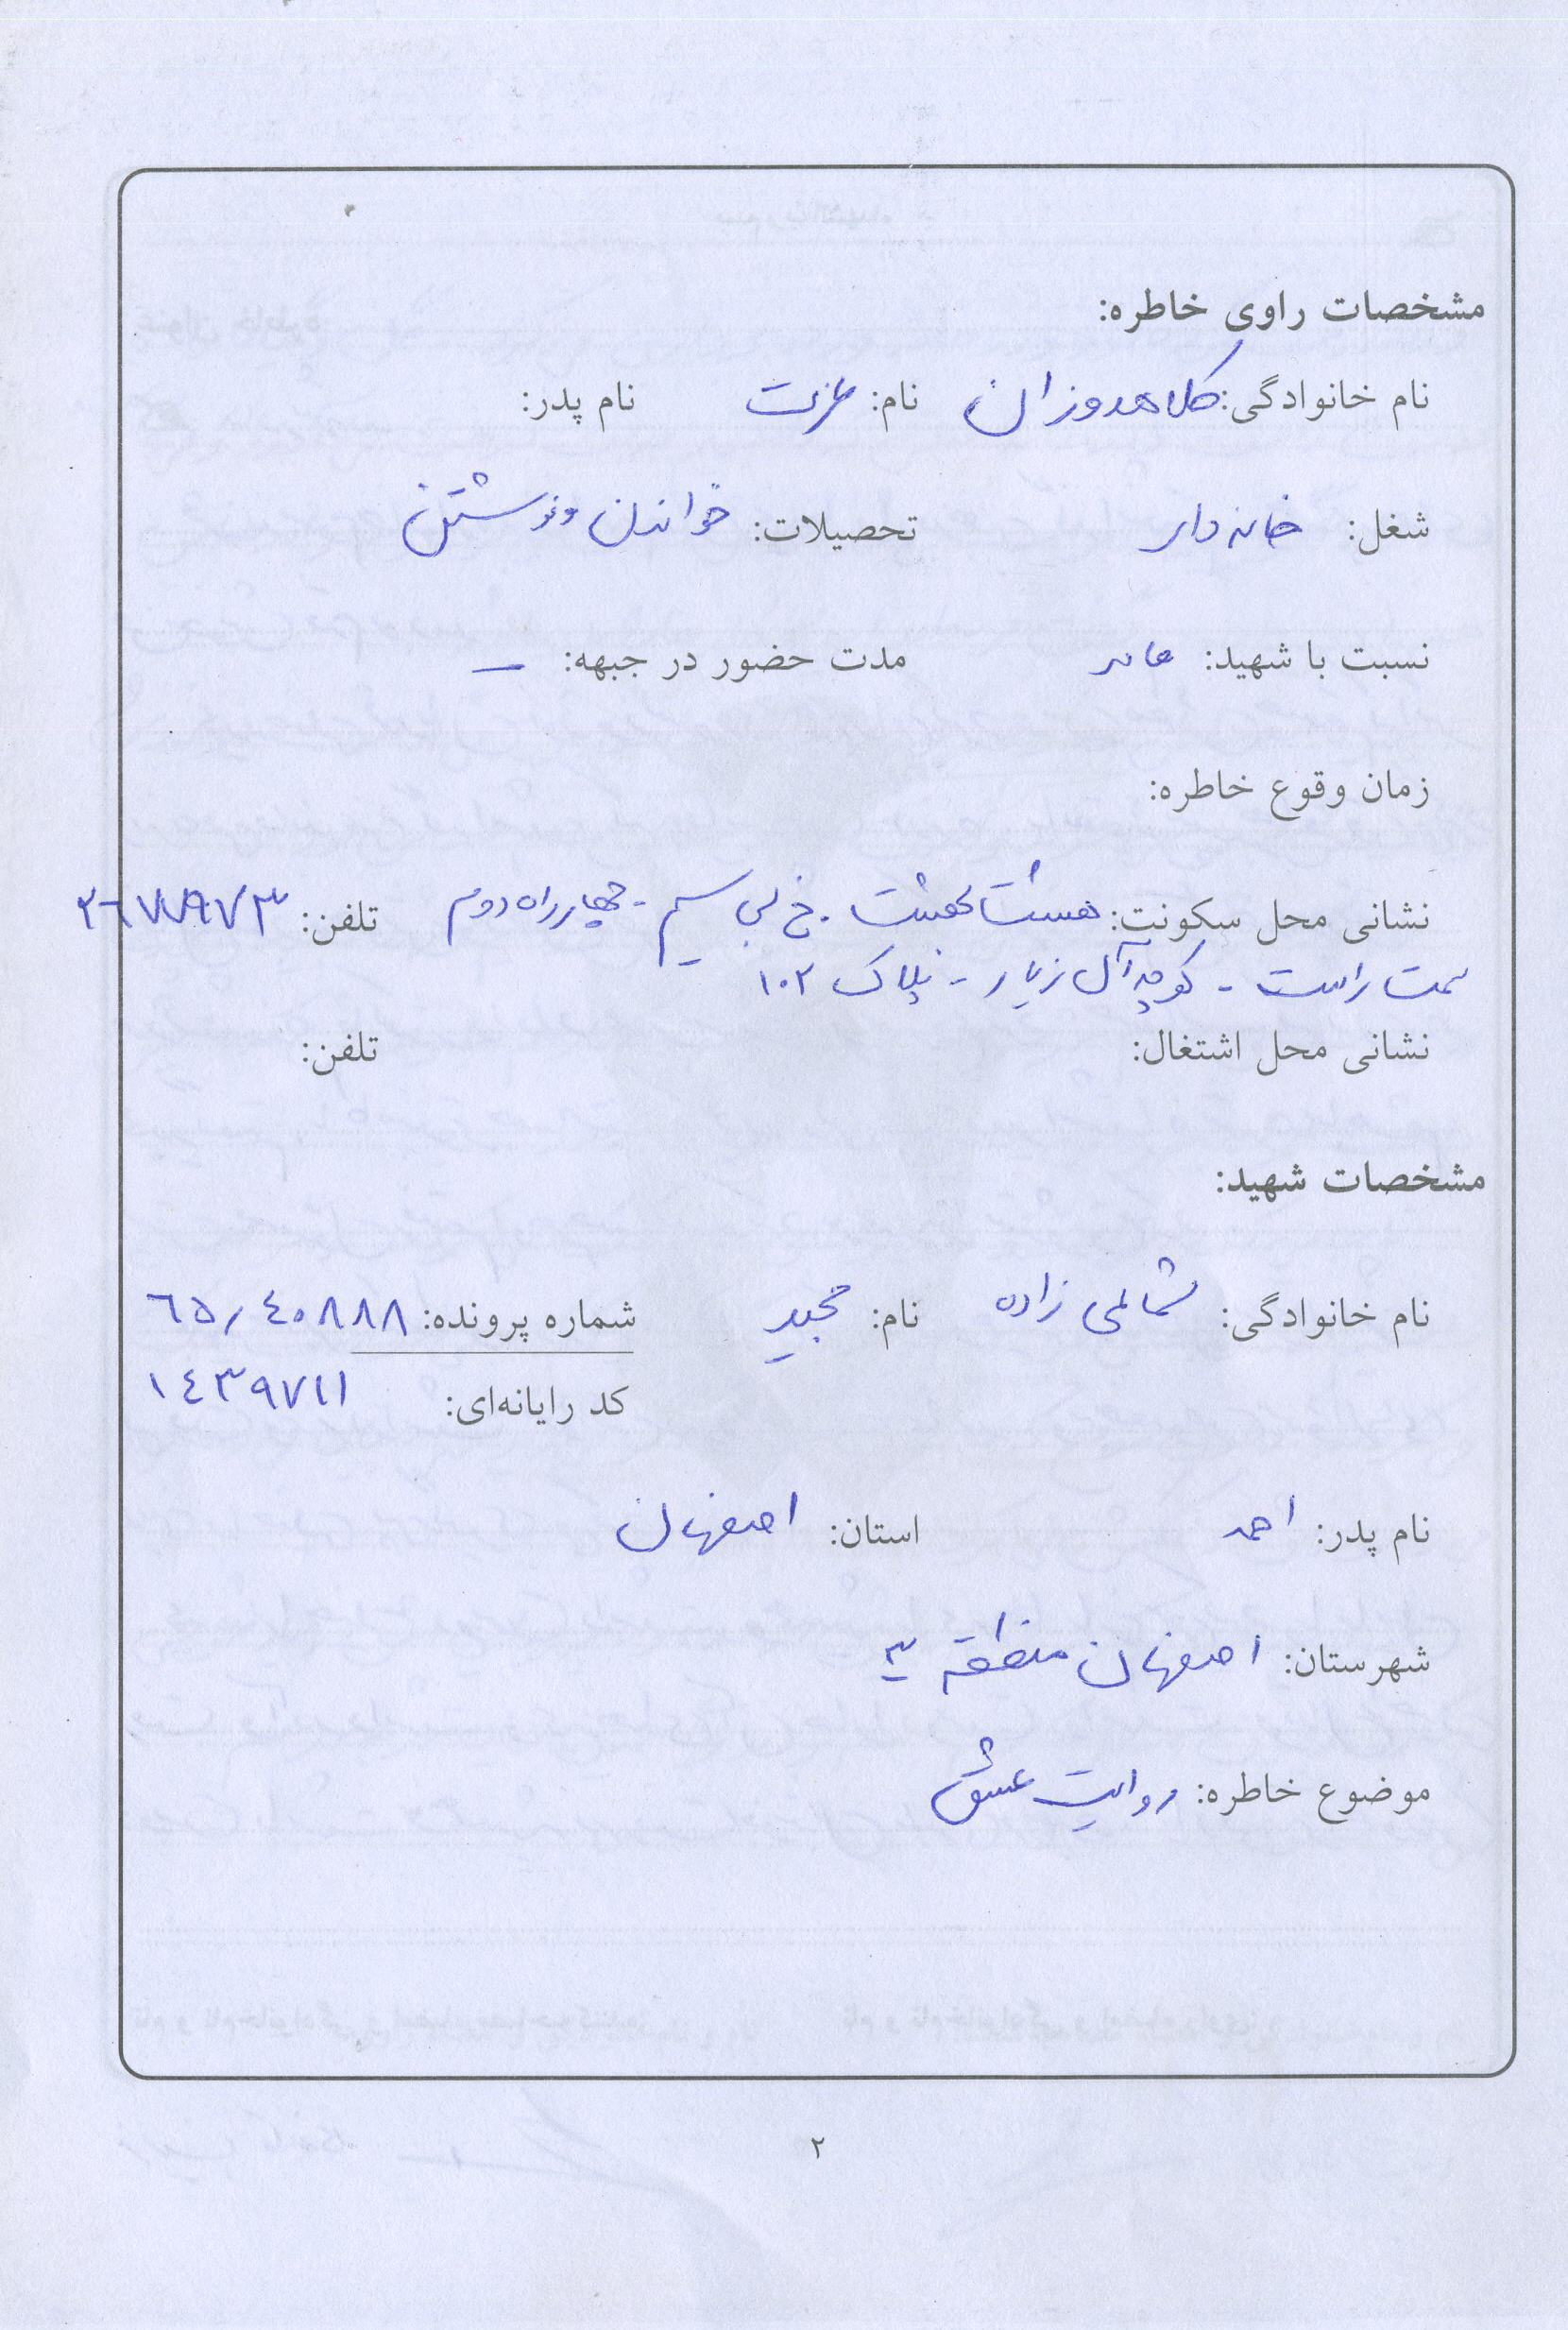 مشخصات راوی خاطره:
نام خانوادگی: کلاهدوزان نام: عزت نام پدر:
شغل: خانه دار تحصیلات: خواندن ونوشتن
نسبت با شهید: مادر مدت حضور در جبهه: –
زمان وقوع خاطره:
نشانی محل سکونت: هشت بهشت - خ بی سیم - چهارراه دوم تلفن: ۲۶۷۷۹۷۳
سمت راست - کوچه آل زیار - پلاک ۱۰۲
نشانی محل اشتغال: تلفن:
مشخصات شهید:
نام خانوادگی: شمالی زاده نام: مجید شماره پرونده: ٦٥/٤٠٨٨٨
کد رایانه‌ای: ١٤٣٩٧١١
نام پدر: احمد استان: اصفهان
شهرستان: اصفهان منطقه ۳
موضوع خاطره: روایت عشق
۲